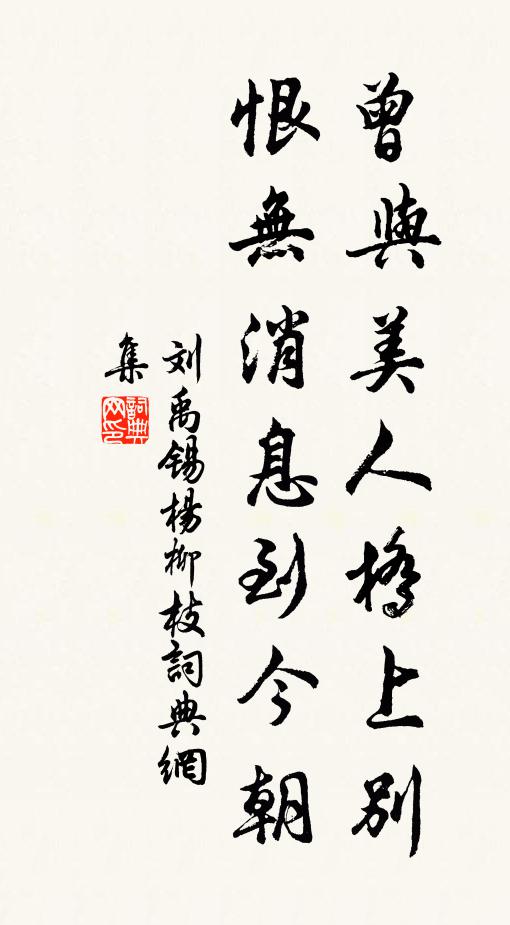 曾與美人橋上別
恨無消息到今朝
刘禹锡楊柳枝詞典網
集
詞典网印